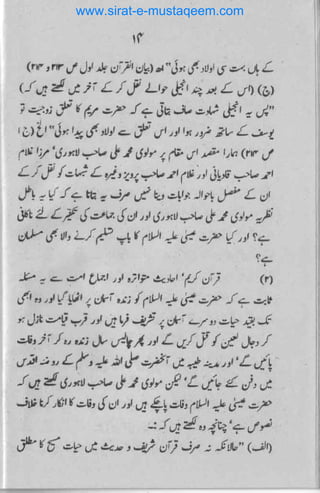 www.sirat-e-mustaqeem.com
۱۴
کے ہاں بھی اولاد سی بہت ہوئی" اھ (بیان القرآن جلد اول ص ۲۱۳ و ۲۱۴)
(ج) (اس) کے بعد چند انجیلی حوالے نقل کر کے آخر میں لکھتے ہیں کہ)
"پس یہ انجیلی شہادت صاف بتاتی ہے کہ حضرت مریم کا تعلق زوجیت تو
یوسف کے ساتھ ضرور ہوا اور اس تعلق سے اولاد بھی پیدا ہوئی" الخ (ج ۱
ص ۲۱۴) ہمارا مقصد اس مقام پر مولوی محمد علی صاحب لاہوری' مرزا غلام
احمد صاحب قادیانی اور غلام احمد صاحب پرویز وغیرہ کے شبہات کو نقل کر کے
ان کے مفصل باحوالہ جوابات دینا نہیں صرف یہ بتانا ہے کہ کیا یہ باطل
نظریہ مولوی محمد علی صاحب لاہوری اور ان کی جماعت کی تکفیر کے لئے ناکافی
ہے؟ اور کیا حضرت عیسیٰ علیہ السلام کا باپ تسلیم کرنے والے بھی مسلمان
ہے؟
(۲) قرآن کریم' احادیث متواترہ اور اجماع امت سے یہ مسئلہ
ثابت ہے کہ حضرت عیسیٰ علیہ السلام کو زندہ آسمان پر اٹھایا گیا اور وہ ابھی
تک بقید حیات دوسرے آسمان پر تشریف فرما ہیں اور قرب قیامت نازل ہو
کر دجال لعین کو قتل کریں گے اور پھر چالیس سال زندہ رہ کر آخر وفات
پائیں گے' اور مدینہ طیبہ میں آنحضرت صلی اللہ علیہ وسلم کے روضہ اقدس
میں دفن کئے جائیں گے' لیکن مولوی محمد علی صاحب لاہوری لکھتے ہیں کہ
حضرت عیسیٰ علیہ السلام وفات پا چکے ہیں اور ان کی وفات کا انکار کرنا خلاف
نصوص ہے' چنانچہ وہ لکھتے ہیں کہ :-
(الف) "حالانکہ نہ صرف قرآن شریف و حدیث میں حیات مسیح کا مطلق